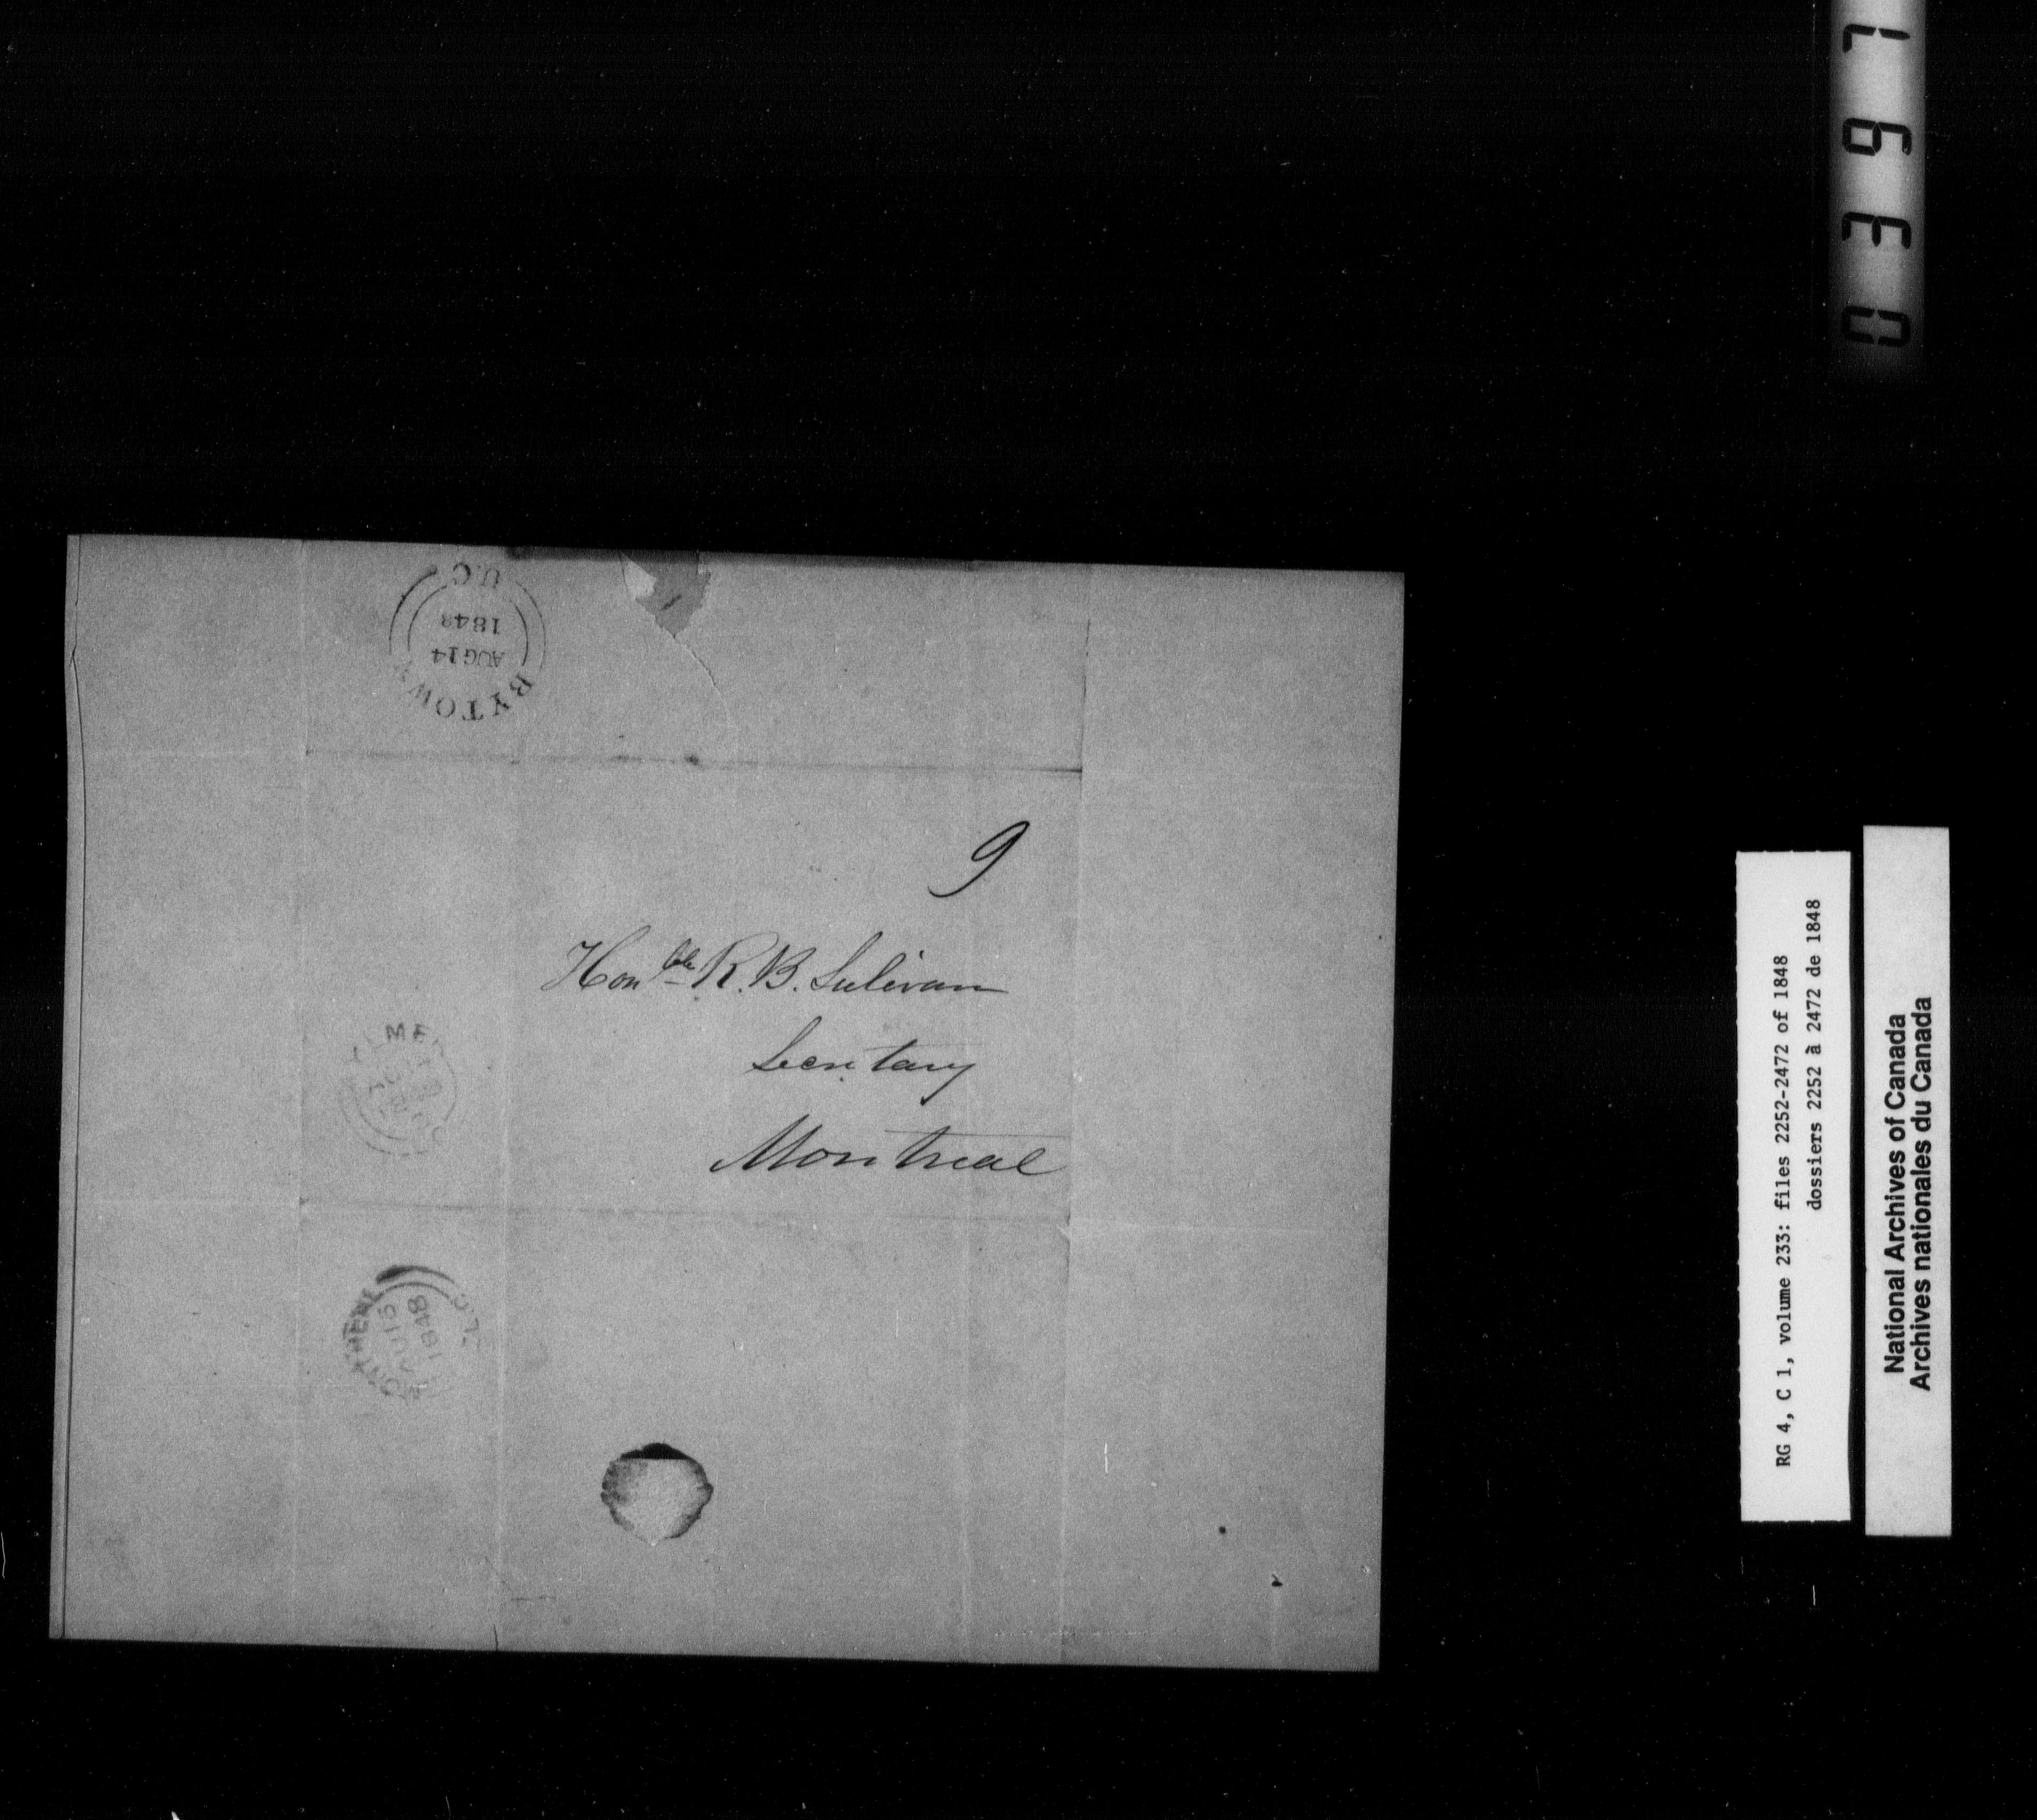 0397
BYTOWN
AUG 14
1848
U.C
9
Honble R. B. Sulivan
Secretary
Montreal
1848
L.C
RG 4, C 1, volume 233: files 2252-2472 of 1848
dossiers 2252 à 2472 de 1848
National Archives of Canada
Archives nationales du Canada